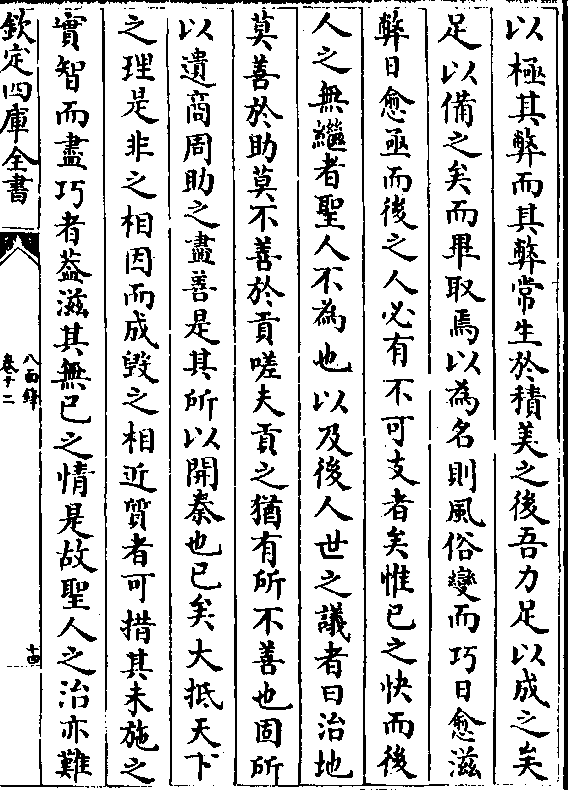 以極其弊而其弊常生於積美之後吾力足以成之矣
足以備之矣而畢取焉以為名則風俗變而巧日愈滋
弊日愈亟而後之人必有不可支者矣惟已之快而後
人之無繼者聖人不為也以及後人世之議者曰治地
莫善於助莫不善於貢嗟夫貢之猶有所不善也固所
以遺商周助之盡善是其所以開秦也已矣大抵天下
之理是非之相因而成毀之相近質者可措其未施之
實智而盡巧者葢滋其無已之情是故聖人之治亦難
欽定四庫全書
八面鋒
卷十二
十四